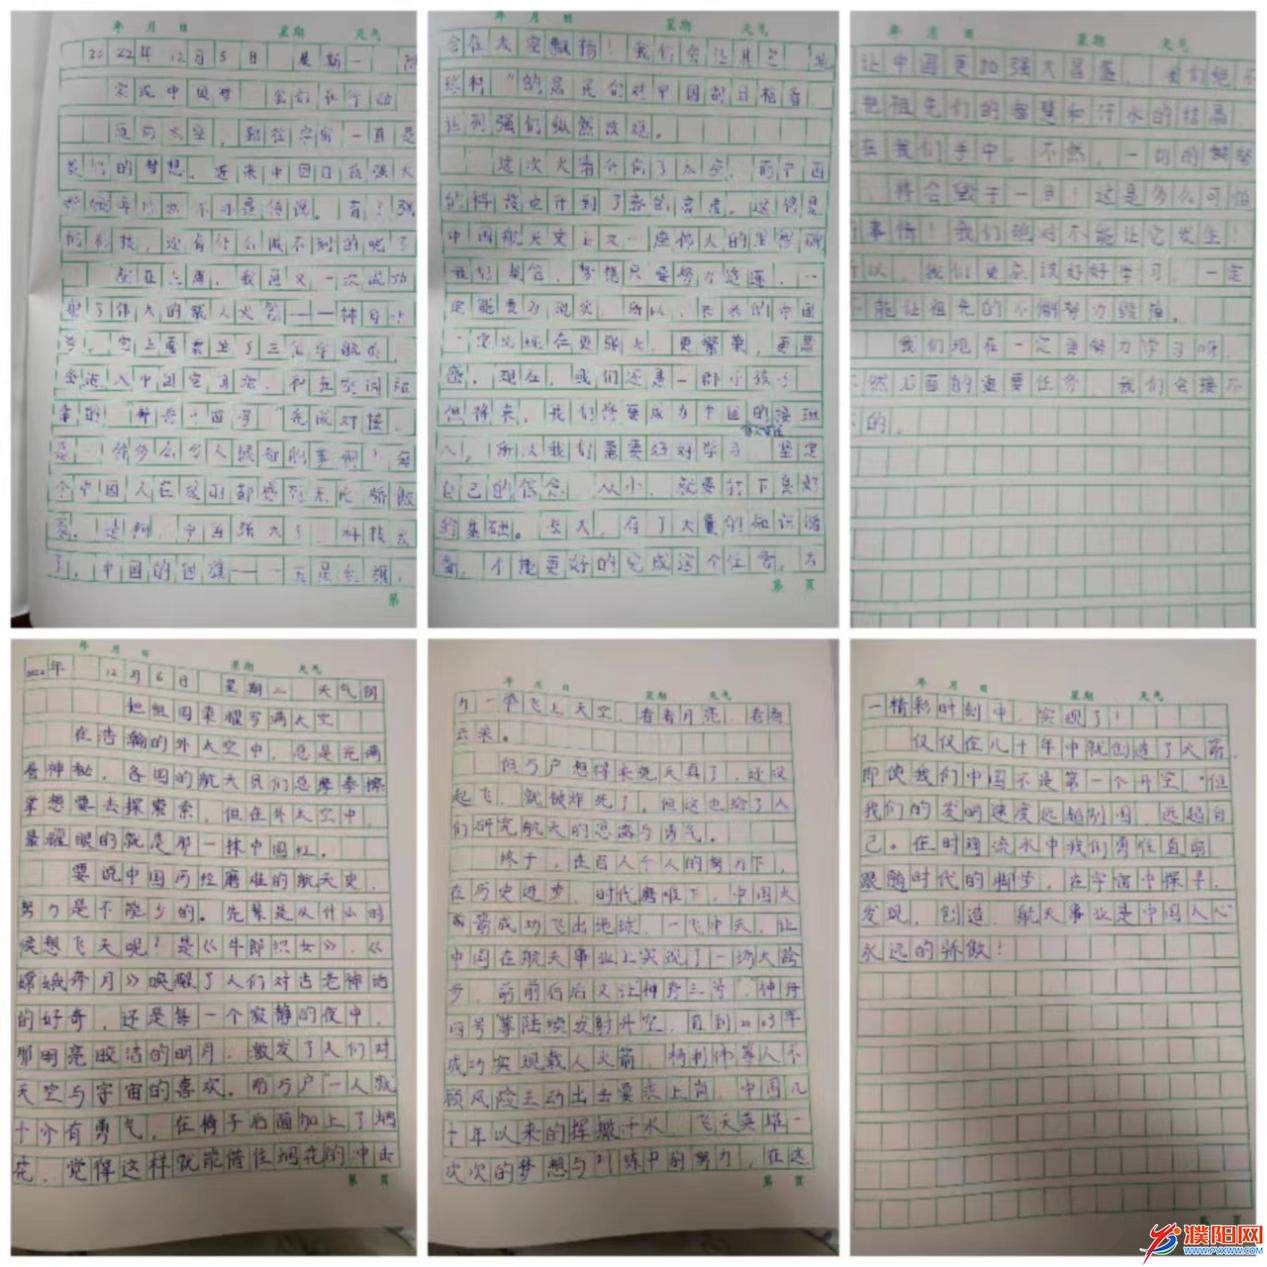 年 月 日 星期 天气
2022年12月5日 星期一
实现中国梦
遥向太空,
的梦想。近来中国日益强大
不可是传说。有了强
的科技,还有什么做不到的呢?
就在六月,我国又一次成功
射了伟大的载人火箭——神舟十
号,它上面乘坐了三名宇航员,
会进入中国空间站,和在空间站
完成对接。
是一件多么令人振奋的事啊!每
个中国人在这时都感到无比骄傲
是啊,中国强大了,科技
了,中国的国旗——五星红旗,
第
年 月 日 星期 天气
会在太空飘扬!我们会让其它“地
球村”的居民们对中国刮目相看,
让列强们纵然改观。
这次火箭升向了太空,而中国
的科技也升到了新的高度。这将是
中国航天史上又一座伟大的里程碑
我们坚信,梦想只要努力追逐,一
定能变为现实。所以,未来的中国
一定比现在更强大,更繁荣,更昌
盛。现在,我们还是一群小孩子
但将来,我们将要成为中国的接班
人,所以我们需要好好学习 坚定
自己的信念 从小,就要打下良好
的基础。长大,有了大量的知识储
备,才能更好的完成这个任务,为
第 页
年 月 日 星期 天气
让中国更加强大昌盛。我们绝不
把祖先们的智慧和汗水的结晶
在我们手中。不然,一切的努力
将会毁于一旦!这是多么可怕
事情!我们绝对不能让它发生!
所以,我们更应该好好学习,一定
不能让祖先的不懈努力毁掉。
我们现在一定要努力学习呀,
不然后面的重要任务,我们会接不
的。
年 月 日 星期 天气
2022年 12月6日 星期二 天气阴
把祖国荣耀写满太空
在浩瀚的外太空中,总是充满
着神秘,各国的航天员们总摩拳擦
掌想要去探索,但在外太空中,
最耀眼的就是那一抹中国红。
要说中国历经磨难的航天史,
努力是不能少的。先辈是从什么时
候想飞天呢?是《牛郎织女》,《
嫦娥奔月》唤醒了人们对古老神话
的好奇,还是每一个寂静的夜中,
那明亮皎洁的明月,激发了人们对
天空与宇宙的喜欢。而“万户”一人就
十分有勇气,在椅子后面加上了烟
花,觉得这样就能借住烟花的冲击
第 页
年 月 日 星期 天气
力一举飞上天空,看看月亮,看看
云朵。
但万户想得未免天真了,还没
起飞,就被炸死了。但这也给了人
们研究航天的思路与勇气。
终于,在百人千人的努力下,
在历史进步,时代磨难下,中国火
箭成功飞出地球,一飞冲天,让
中国在航天事业上实现了一场大跨
步,前前后后又让“神舟三号”,“神舟
四号”等陆续发射升空,直到2003年
成功实现载人火箭,杨利伟等人不
顾风险主动出去要求上岗,中国几
十年以来的挥撒汗水,飞天英雄一
次次的梦想与训练中的努力,在这
第 页
年 月 日 星期 天气
一精彩时刻中,实现了!
仅仅在几十年中就创造了火箭,
即使我们中国不是第一个升空,但
我们的发明速度远超别国,远超自
己。在时间流水中我们勇往直前
跟随时代的脚步,在宇宙中探寻,
发现,创造,航天事业是中国人心
永远的骄傲!
濮阳网
WWW.PYXWW.COM